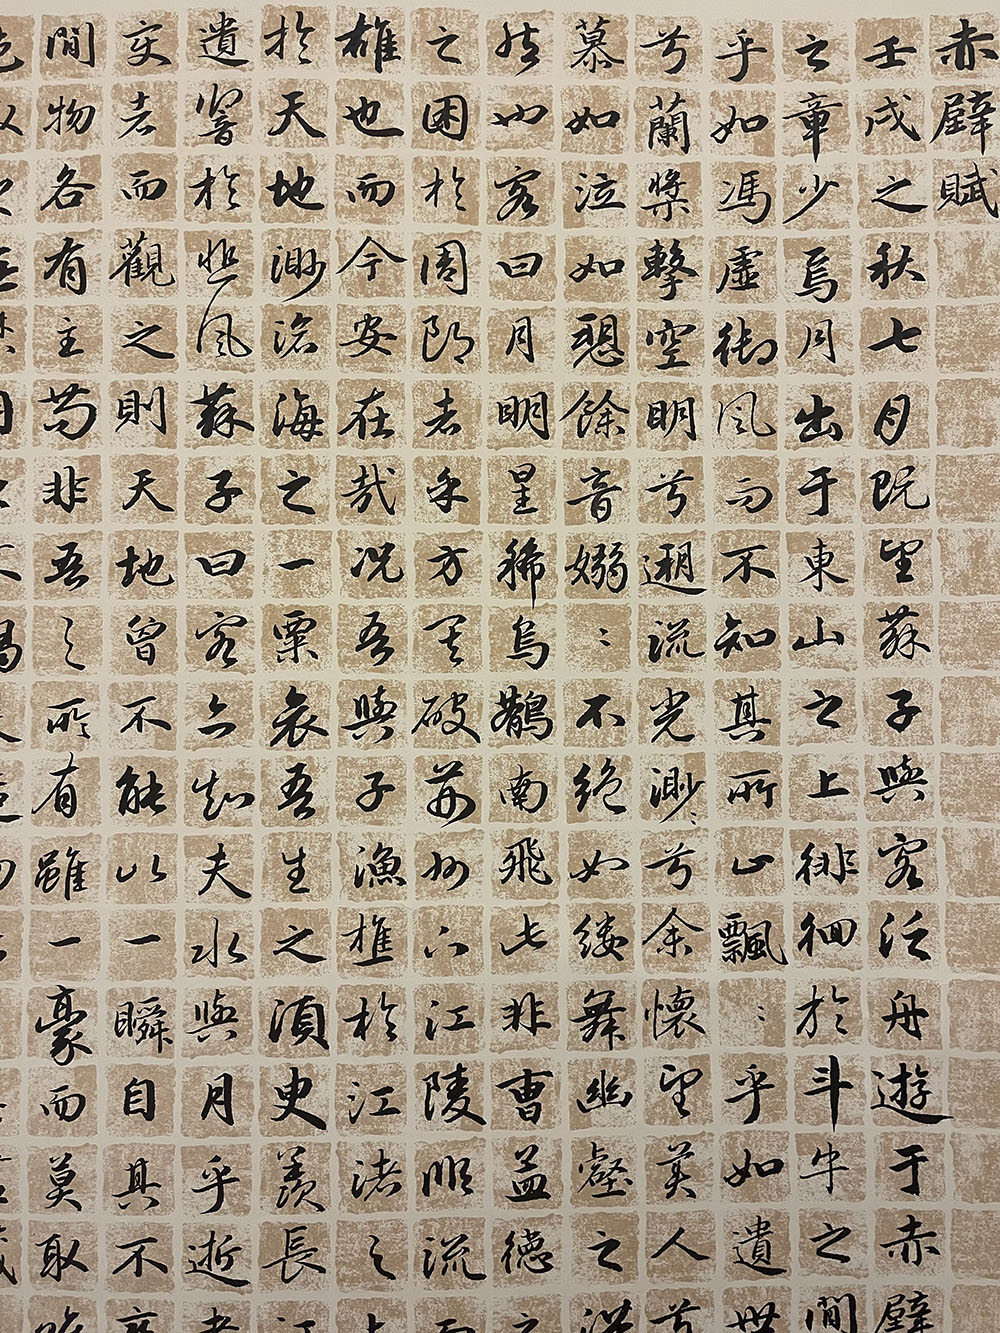 赤壁賦
壬戌之秋七月既望蘇子與客泛舟遊于赤壁
之章少焉月出于東山之上徘徊於斗牛之間
乎如馮虛御風而不知其所止飄〻乎如遺世
兮蘭槳擊空明兮遡流光渺〻兮余懷望美人兮
慕如泣如愬餘音嫋〻不絕如縷舞幽壑之潛
然也客曰月明星稀烏鵲南飛此非曹孟德之
之困於周郎者乎方其破荊州下江陵順流而
雄也而今安在哉況吾與子漁樵於江渚之上
於天地渺滄海之一粟哀吾生之須臾羨長江
遺響於悲風蘇子曰客亦知夫水與月乎逝者
変者而觀之則天地曾不能以一瞬自其不變
間物各有主苟非吾之所有雖一豪而莫取